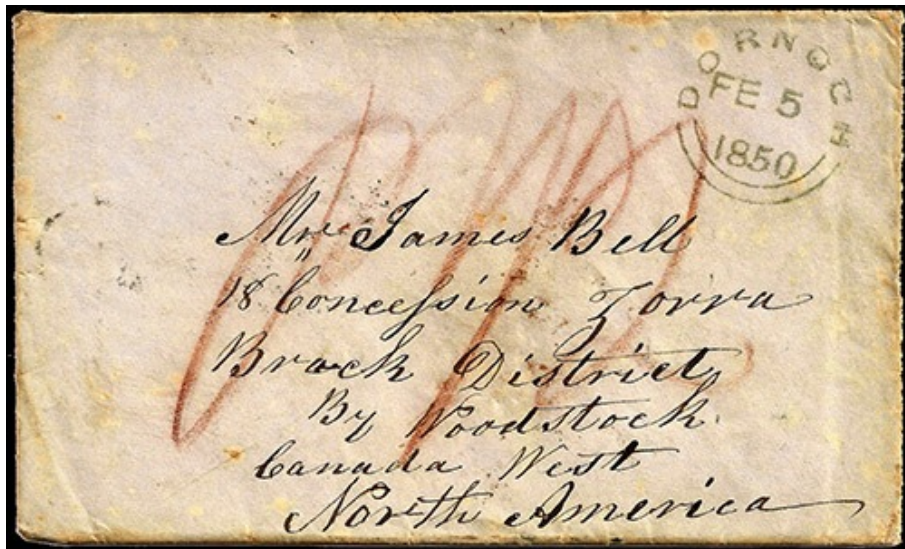 DORNOCH
FE 5
1850
Mr James Bell
18 Concession Zorra
Brock District
By Woodstock
Canada West
North America